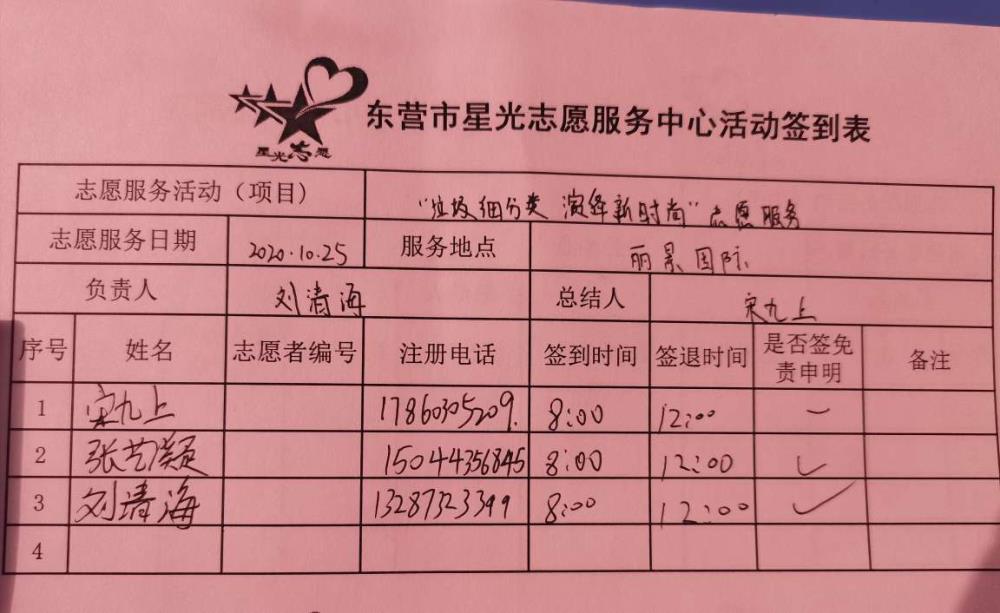 星光志愿
东营市星光志愿服务中心活动签到表
志愿服务活动（项目） “垃圾细分类 演绎新时尚”志愿服务
志愿服务日期 2020.10.25 服务地点 丽景国际
负责人 刘清海 总结人 宋九上
序号 姓名 志愿者编号 注册电话 签到时间 签退时间 是否签免责申明 备注
1 宋九上 17860305209. 8:00 12:00
2 张艺颢 15044356845 8:00 12:00 ✓
3 刘清海 13287323399 8:00 12:00 ✓
4